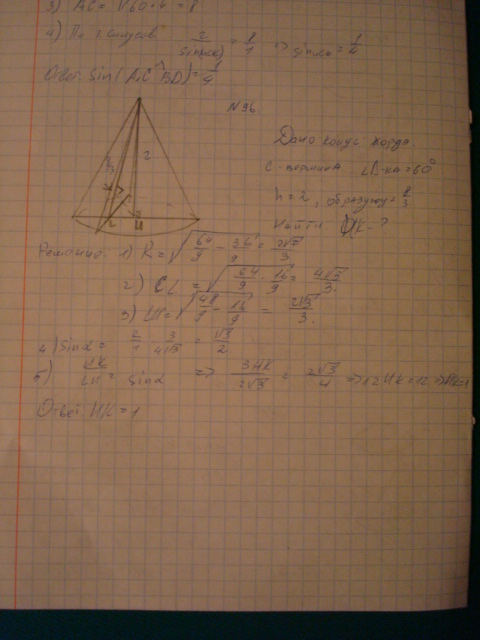 3) AC = √60+4 = 8
4) По т синусов 2/sin(α) = 8/1 => sinα = 1/4
Ответ: sin(AC^BD) = 1/4
N96
Дано конус хорда.
C - вершина
h = 2, образующ = 8/3
Найти HK - ?
h
2
H
Решение: 1) R = √64/9 - 36/9 = 2√7/3
2) CL = √64/9 - 16/9 = 4√3/3.
3) LH = √48/9 - 16/9 = 2√3/3.
4) sinα = 2/1 · 3/4√3 = √3/2
5) HK/LH = sinα => 3HK/2√3 = 2√3/4 => 12HK = 12 => HK = 1
Ответ HK = 1